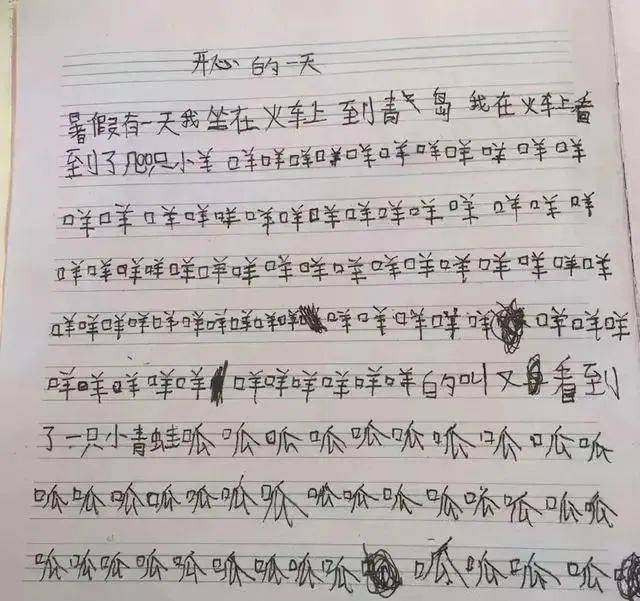 开心的一天
暑假有一天我坐在火车上到青气岛我在火车上看
到了几只小羊咩咩咩咩咩咩咩咩咩咩咩
咩咩咩咩咩咩咩咩咩咩咩咩咩咩咩
咩咩咩咩咩咩咩咩咩咩咩咩咩咩咩咩咩
咩咩咩咩咩咩咩咩咩咩咩咩咩咩咩咩咩咩
咩咩咩咩咩咩咩咩咩咩咩的叫又看到
了一只小青蛙呱呱呱呱呱呱呱呱呱呱
呱呱呱呱呱呱呱呱呱呱呱呱呱呱呱
呱呱呱呱呱呱呱呱呱呱呱呱呱呱